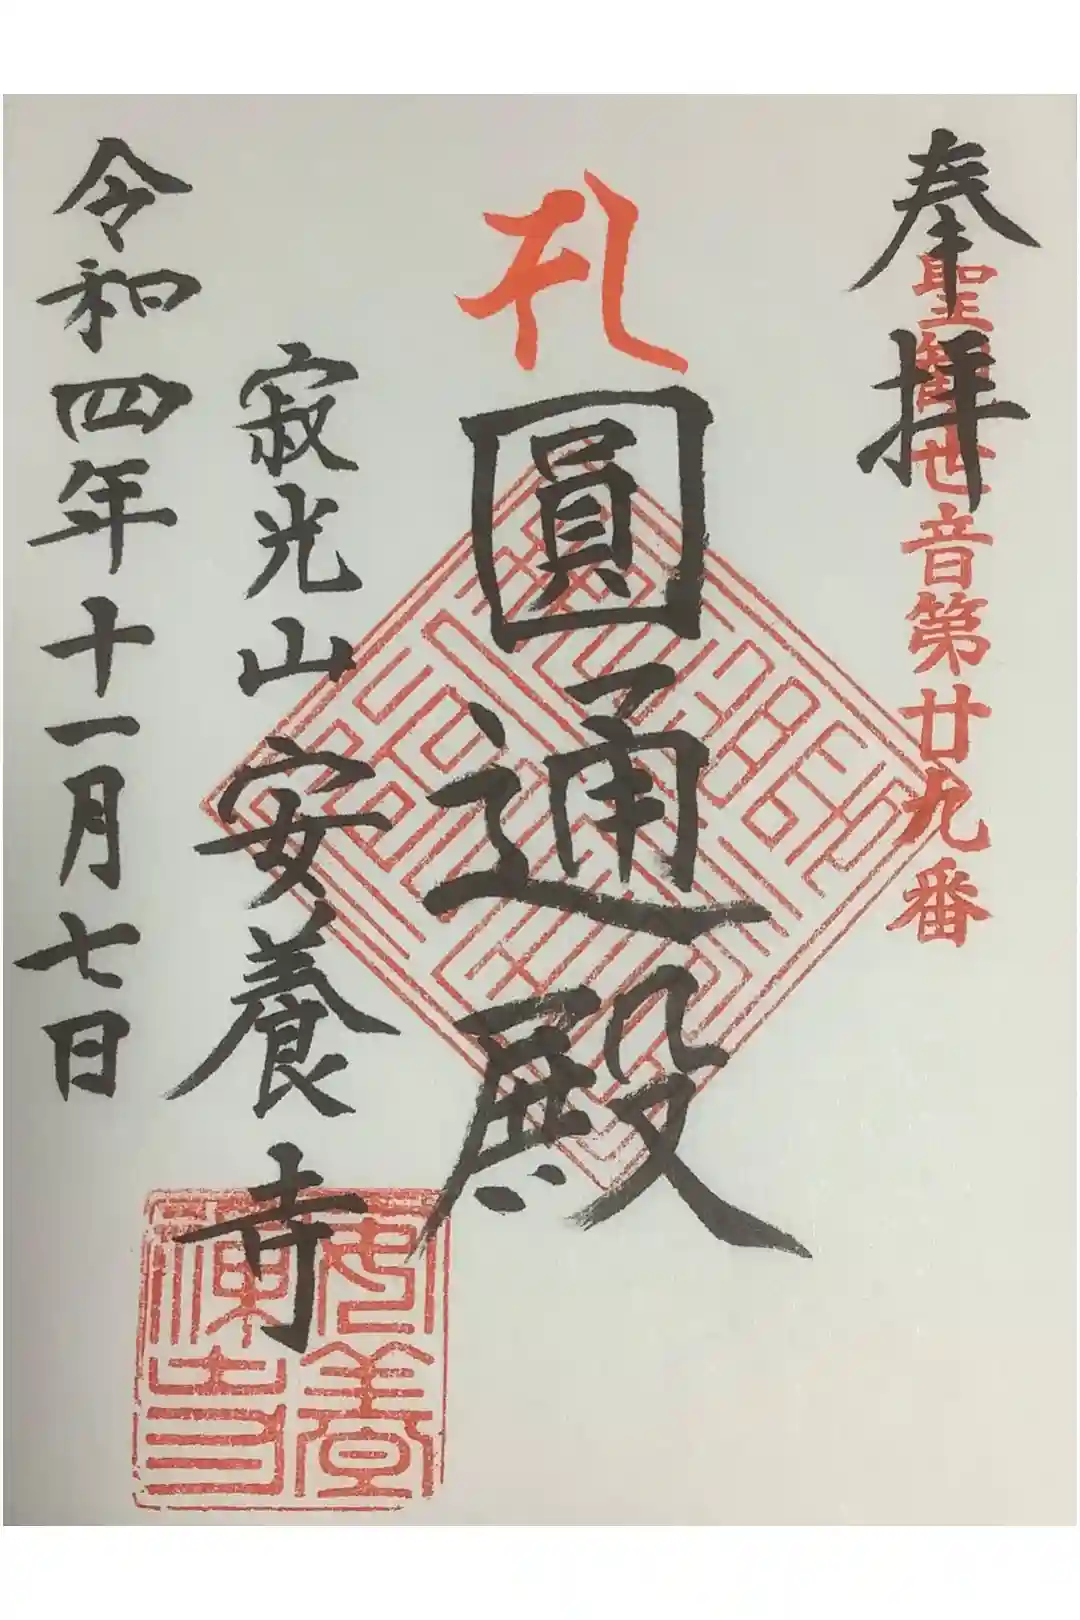 奉拝
聖観世音第廿九番
圓通殿
寂光山安養寺
令和四年十一月七日